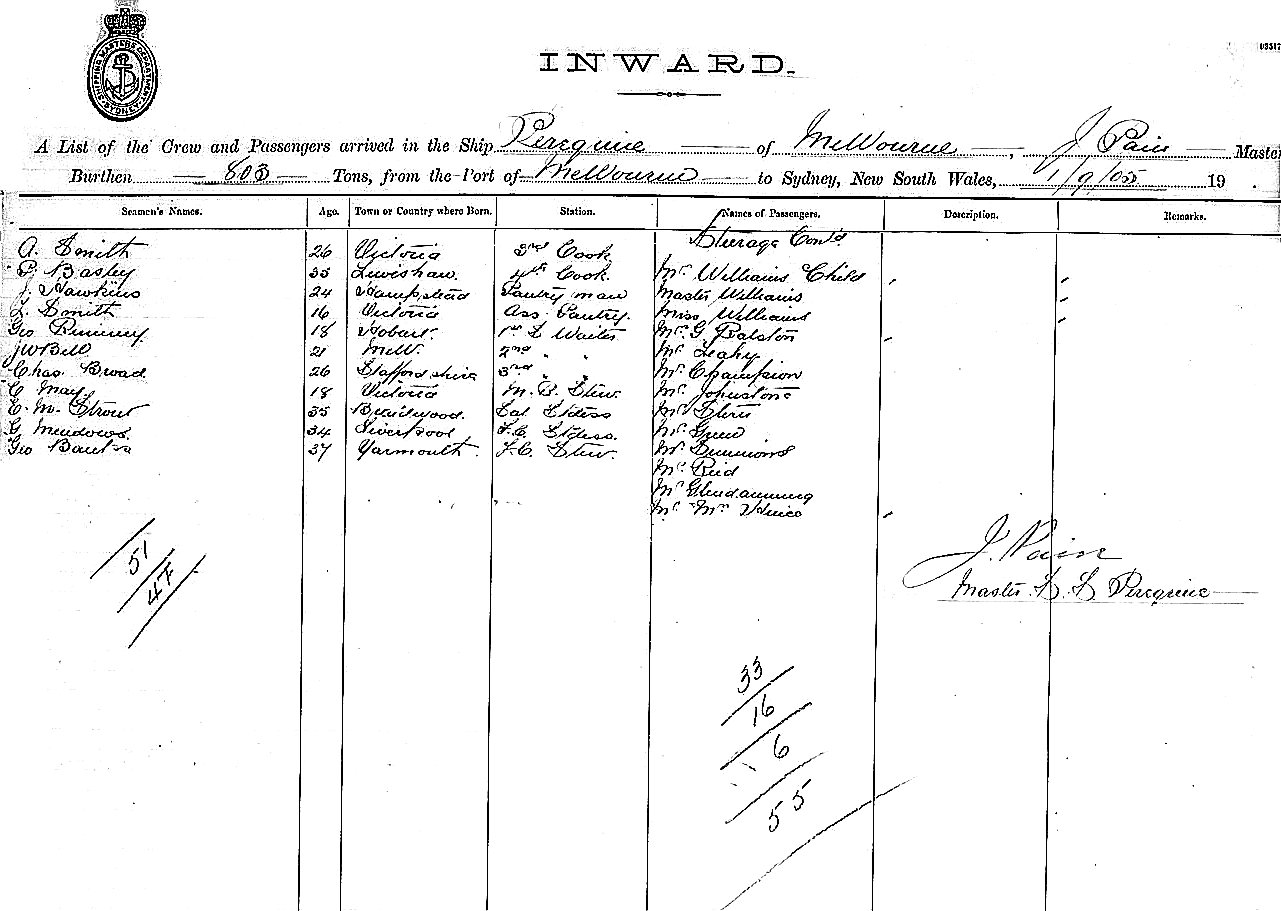 SHIPPING MASTERS DEPARTMENT SYDNEY
INWARD.
A List of the Crew and Passengers arrived in the Ship Peregrine of Melbourne, J Pain Master
Burthen 803 Tons, from the Port of Melbourne to Sydney, New South Wales, 1/9/05 19 .
Seamen's Names. Age. Town or Country where Born. Station. Names of Passengers. Description. Remarks.
Steerage Cont'd
A. Smith 26 Victoria 3rd Cook
P. Basley 35 Lewisham 4th Cook Mrs Williams Child
J. Hawkins 24 Hampstead Pantry man Master Williams
L. Smith 16 Victoria Ass. Pantry. Miss Williams
Geo 18 Hobart. 1st S Waiter G. Ralston
JW Bell 21 Melb. 2nd " " Mr Leahy
Chas. Broad 26 Staffordshire 3rd " " Mr Champion
C May 18 Victoria M. B. Stew. Mr Johnstone
E. M. Strout 35 Braidwood. Sal Stdess Mr
G Meadows. 34 Liverpool F.C. Stdess. Mr
Geo Banks 37 Yarmouth. F.C. Stew. Mr Simmons
Mr Reid
Mr Glendanning
51
47
J. Pain
Master S. S. Peregrine
33
16
6
55